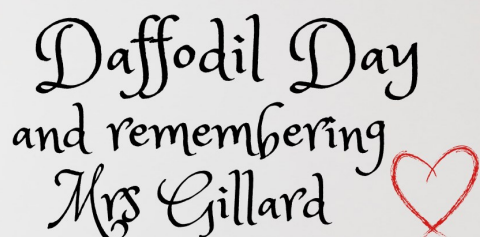 Daffodil Day
and remembering
Mrs Gillard